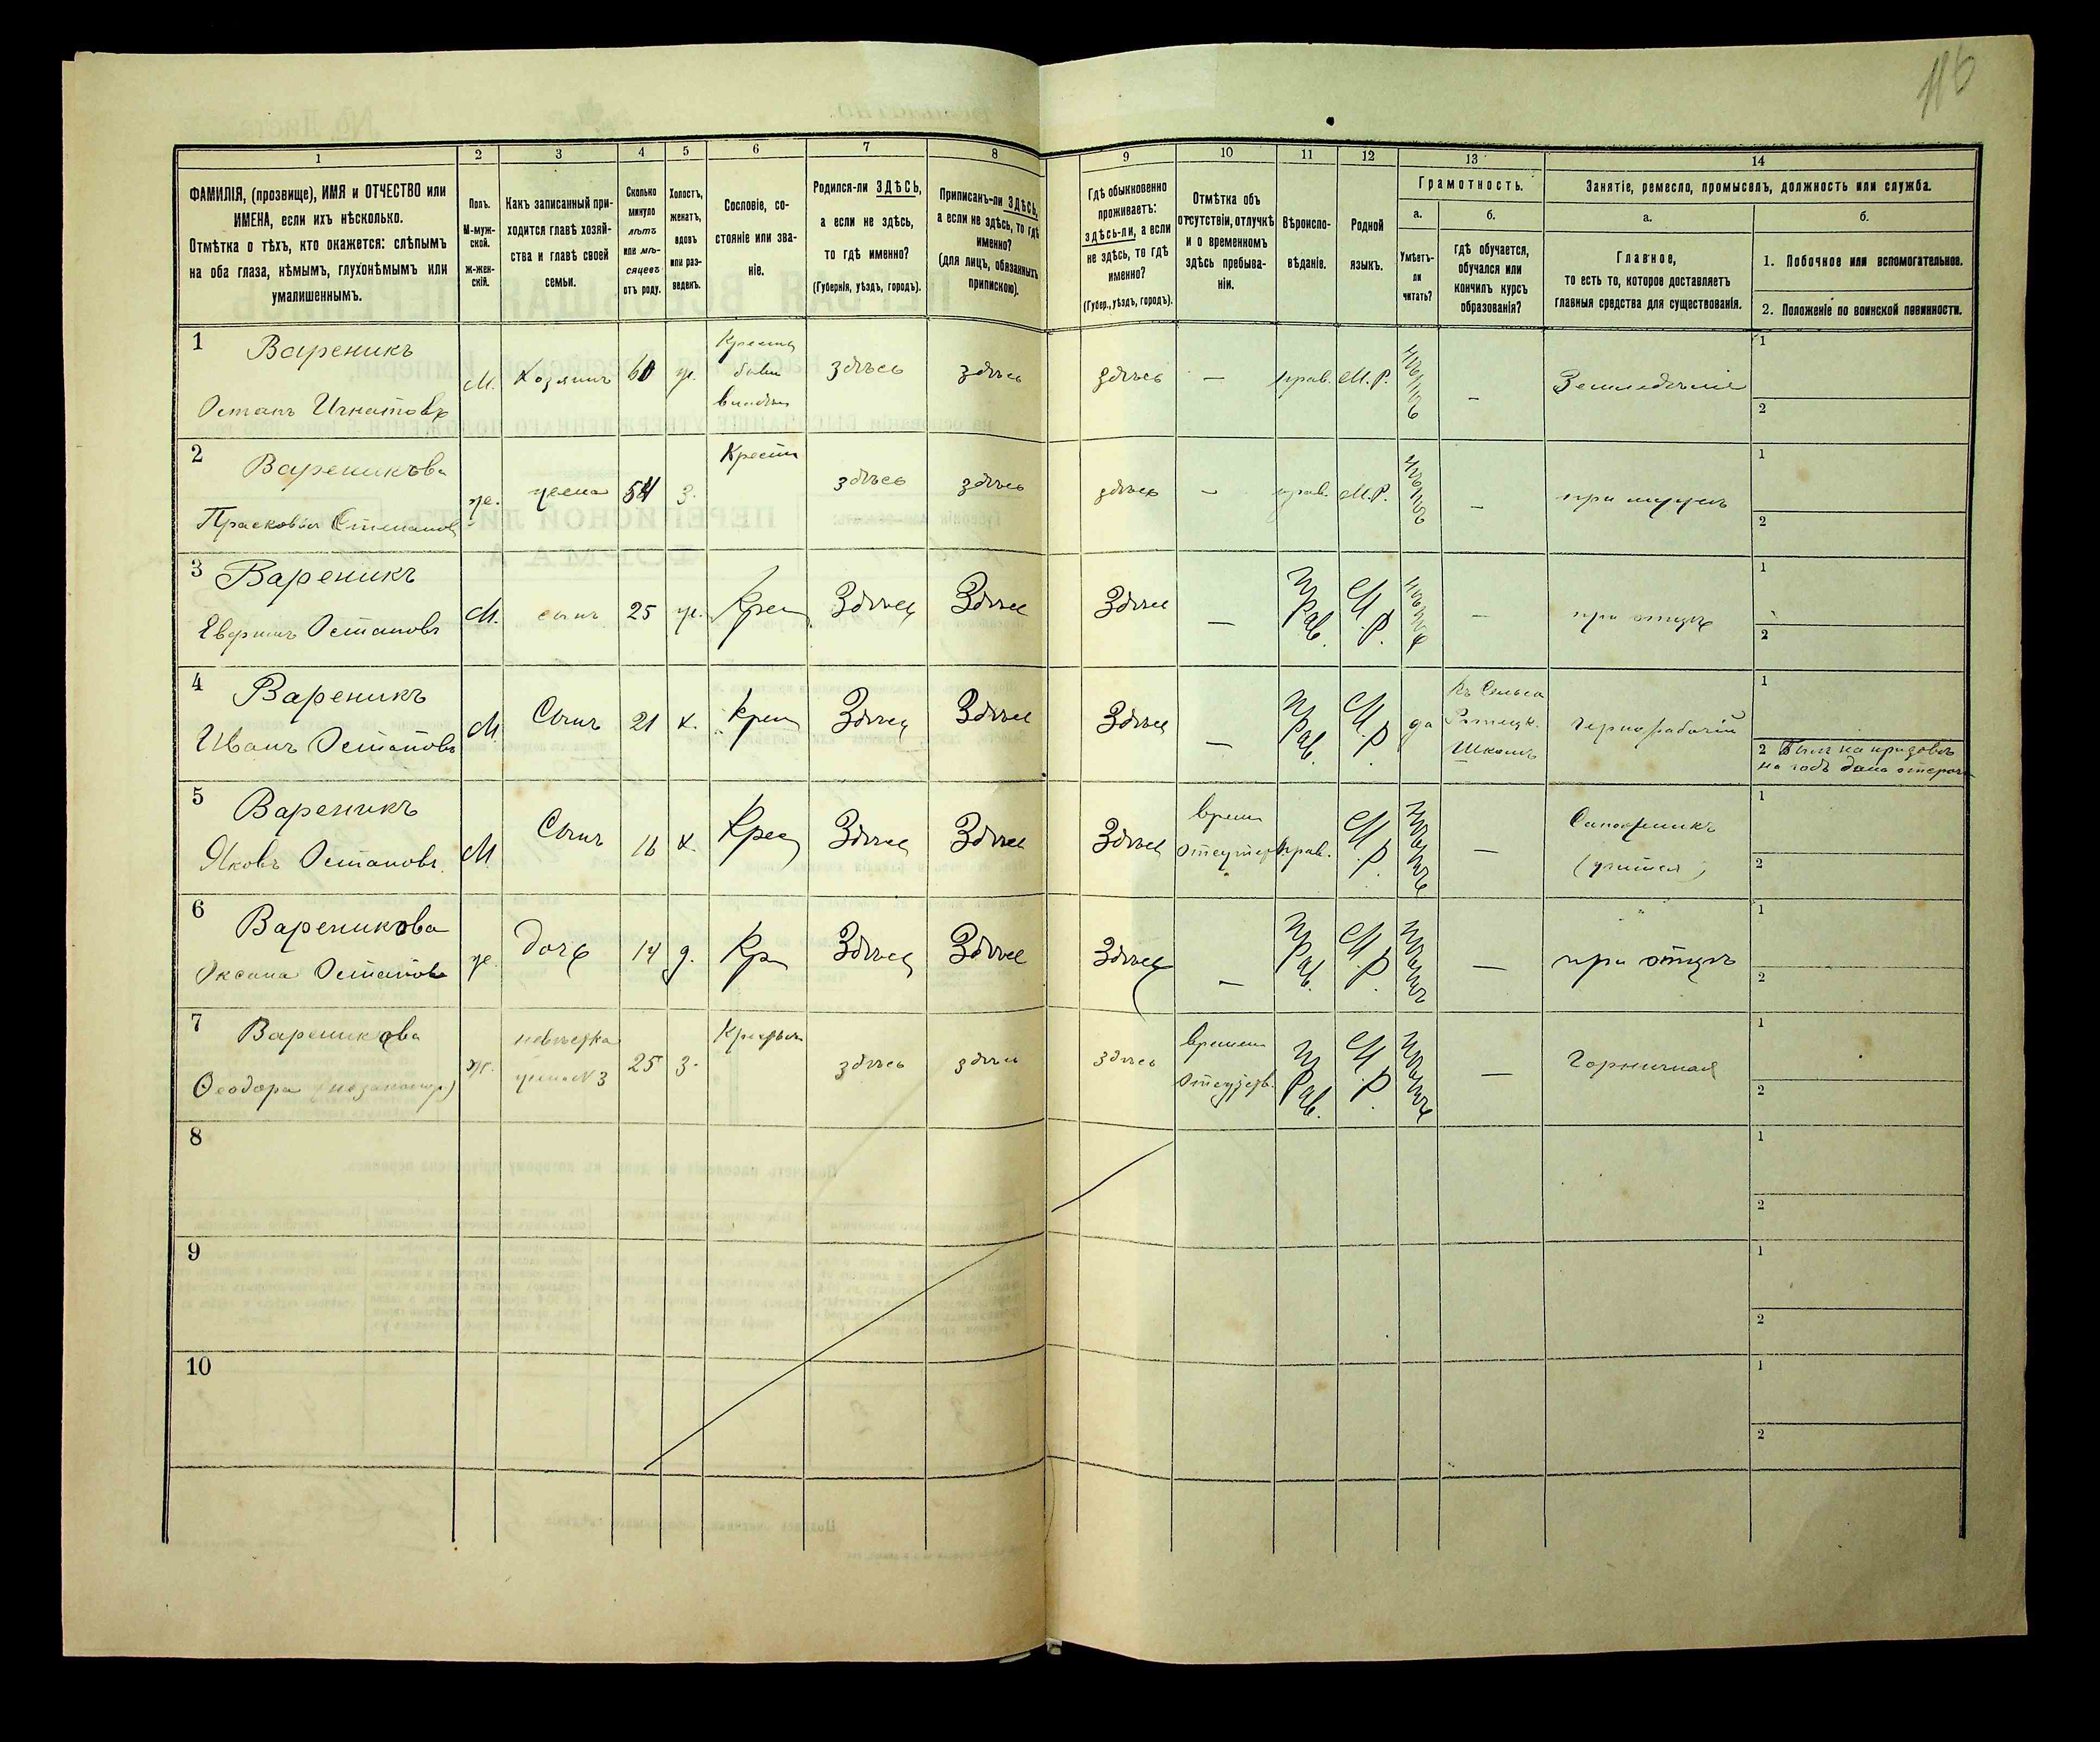 116
1 2 3 4 5 6 7 8 9 10 11 12 13 14
ФАМИЛІЯ, (прозвище), ИМЯ и ОТЧЕСТВО или
ИМЕНА, если ихъ нѣсколько.
Отмѣтка о тѣхъ, кто окажется: слѣпымъ
на оба глаза, нѣмымъ, глухонѣмымъ или
умалишеннымъ.
Полъ.
М-муж-
ской.
ж-жен-
скій.
Какъ записанный при-
ходится главѣ хозяй-
ства и главѣ своей
семьи.
Сколько
минуло
лѣтъ
или мѣ-
сяцевъ
отъ роду.
Холостъ,
женатъ,
вдовъ
или раз-
веденъ.
Сословіе, со-
стояніе или зва-
ніе.
Родился-ли ЗДѢСЬ,
а если не здѣсь,
то гдѣ именно?
(Губернія, уѣздъ, городъ).
Приписанъ-ли ЗДѢСЬ,
а если не здѣсь, то гдѣ
именно?
(для лицъ, обязанныхъ
припискою).
Гдѣ обыкновенно
проживаетъ:
здѣсь-ли, а если
не здѣсь, то гдѣ
именно?
(Губер., уѣздъ, городъ).
Отмѣтка объ
отсутствіи, отлучкѣ
и о временномъ
здѣсь пребыва-
ніи.
Вѣроиспо-
вѣданіе.
Родной
языкъ.
Грамотность.
а.
Умѣетъ-
ли
читать?
б.
гдѣ обучается,
обучался или
кончилъ курсъ
образованія?
Занятіе, ремесло, промыселъ, должность или служба.
а.
Главное,
то есть то, которое доставляетъ
главныя средства для существованія.
б.
1. Побочное или вспомогательное.
2. Положеніе по воинской повинности.
1 Вареникъ
Остапъ Игнатовъ
М. Хозяинъ 60 ж. здѣсь здѣсь здѣсь — прав. М.Р. нѣтъ — Земледѣліе
1
2
2 Вареникова
Прасковья Степанов
ж. жена 54 з. Крест здѣсь здѣсь здѣсь — прав. М.Р. нѣтъ — при мужѣ
1
2
3 Вареникъ
Остаповъ
М. сынъ 25 ж. Крес Здѣсь Здѣсь Здѣсь — Прав. М.Р. нѣтъ — при отцѣ
1
2
4 Вареникъ
Иванъ Остаповъ
М. Сынъ 21 х. Крес Здѣсь Здѣсь Здѣсь — Прав. М.Р. да
Школѣ
Чернорабочій
1
2 Былъ на призовѣ
на годъ дана отсроч
5 Вареникъ
Яковъ Остаповъ.
М Сынъ 16 х. Крес Здѣсь Здѣсь Здѣсь
врем
отсутств
прав. М.Р. нѣтъ —
Сапожникъ
(учится)
1
2
6 Вареникова
Оксана Остапов
ж. дочь 14 д. Кр Здѣсь Здѣсь Здѣсь — Прав. М.Р. нѣтъ — при отцѣ
1
2
7 Вареникова
Ѳеодора
ж.
невѣстка
жена N 3
25 з. здѣсь здѣсь здѣсь
времен
отсутств.
Прав. М.Р. нѣтъ — Горничная
1
2
8
1
2
9
1
2
10
1
2